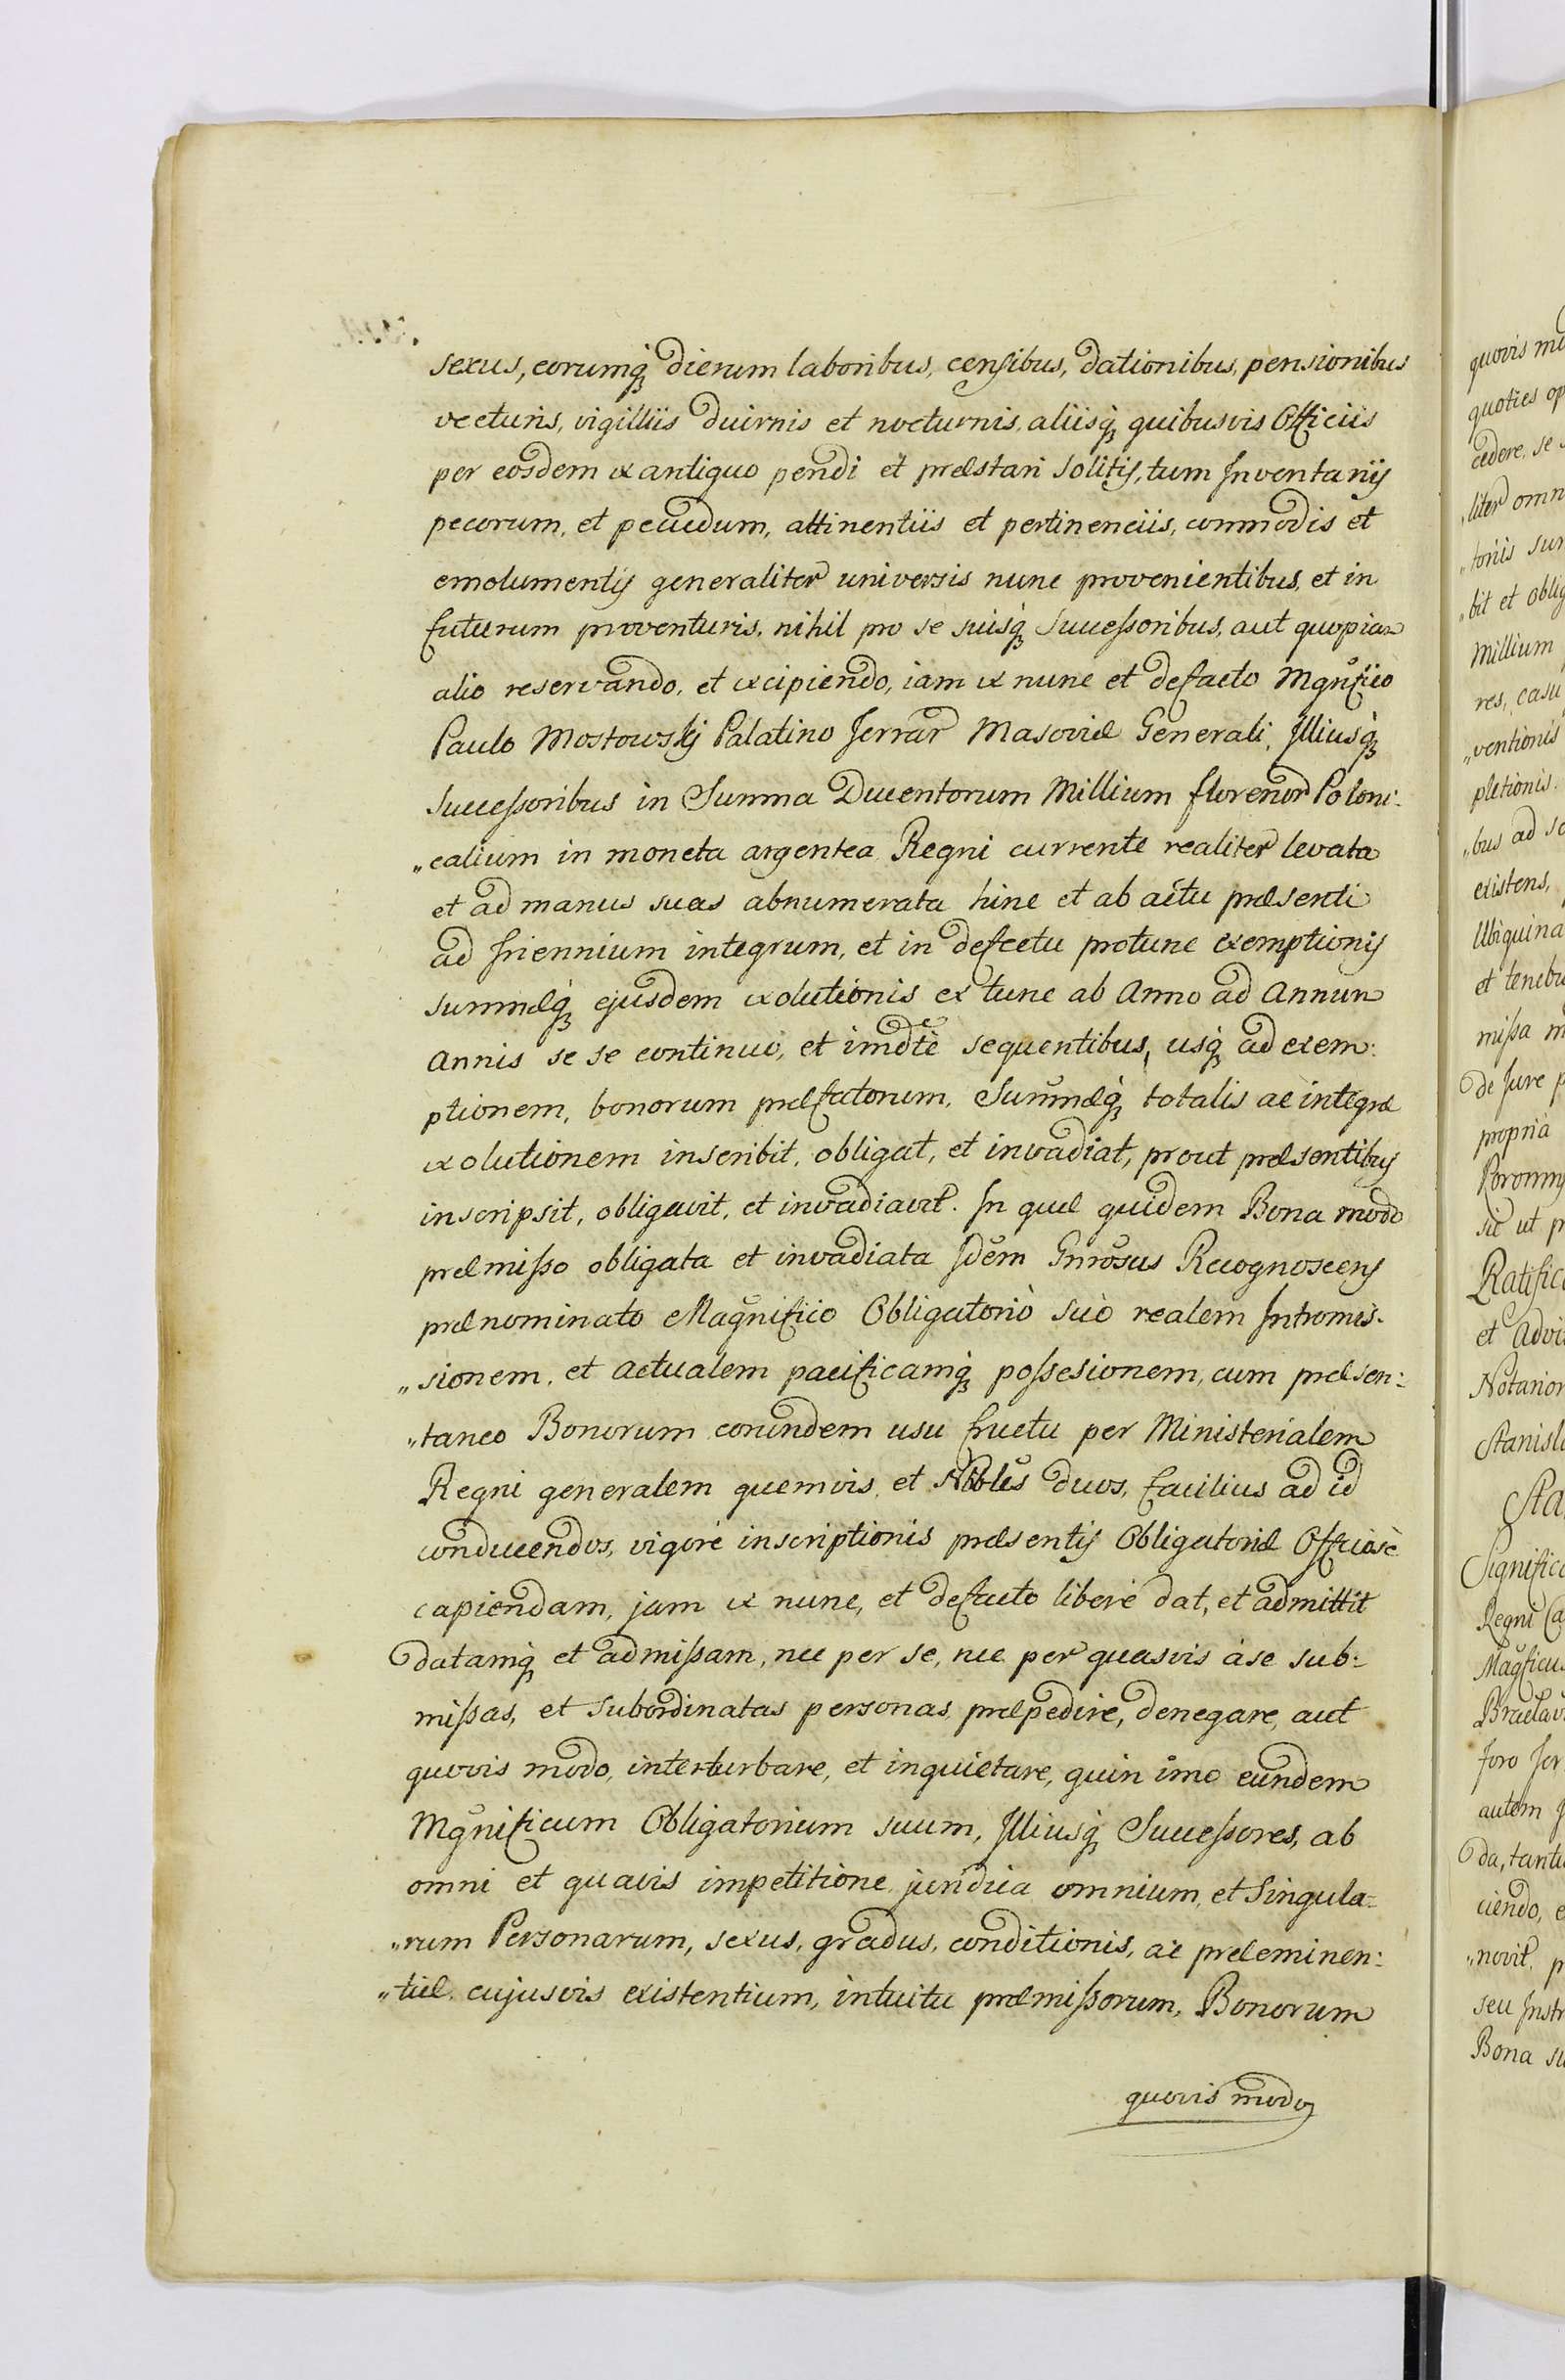 sexus, eorumq̨ dierum laboribus, censibus, dationibus, pensionibus
vecturis, vigilliis duirnis et nocturnis, aliisq̨ quibusvis Officiis
per eosdem ex antiquo pendi et præstari solitis, tum Inventarijs
pecorum, et pecudum, attinentiis et pertinenciis, commodis et
emolumentis generaliter universis nunc provenientibus, et in
futurum proventuris, nihil pro se suisq̨ Successoribus, aut quopiam
alio reservando, et excipiendo, iam ex nunc et defacto Mgnfico
Paulo Mostowskj Palatino Terrar Masoviæ Generali, Illiusq̨
Successoribus in Summa Ducentorum Millium florenor Poloni-
„calium in moneta argentea Regni currente realiter levata
et ad manus suas abnumerata hinc et ab actu præsenti
ad triennium integrum, et in defectu protunc exemptionis
summæq̨ ejusdem exolutionis ex tunc ab Anno ad Annum
Annis se se continuo, et imdte sequentibus, usq̨ ad exem:
ptionem, bonorum præfatorum, Summæq̨ totalis ac integræ
exolutionem inscribit, obligat, et invadiat, prout præsentibus
inscripsit, obligavit, et invadiavit. In quæ quidem Bona modo
præmisso obligata et invadiata Idem Gnrosus Recognoscens
prænominato Magnifico Obligatorio suo realem Intromis-
„sionem, et actualem pacificamq̨ possesionem, cum præsen:
„taneo Bonorum eorundem usu fructu per Ministerialem
Regni generalem quemvis, et Nobles duos, facilius ad id
conducendos, vigore inscriptionis præsentis Obligatoriæ Offciose
capiendam, jam ex nunc, et defacto libere dat, et admittit
datamq̨ et admissam, nec per se, nec per quasvis à se sub-
missas, et subordinatas personas, præpedire, denegare, aut
quovis modo, interturbare, et inquietare, quin imo eundem
Mgnificum Obligatorium suum, Illiusq̨ Successores, ab
omni et quavis impetitione juridica omnium, et Singula-
„rum Personarum, sexus, gradus, conditionis, ac præeminen:
„tiæ, cujusvis existentium, intuitu præmissorum, Bonorum
quovis modo
quovis mo
quoties op
cedere, se
„liter omn
„toriis sum
„bit et oblig
Millium
res, casu
„ventionis
pletionis.
„bus ad so
existens,
Ubiquina
et tenebu
missa m
de Jure p
propria
sic ut p
Ratific
et Advi
Notarior
Stanisl
Sta
Significa
Regni Ca
Magficu
Braclav
foro
autem
da, tant
ciendo, e
„novit, p
seu Instr
Bona su